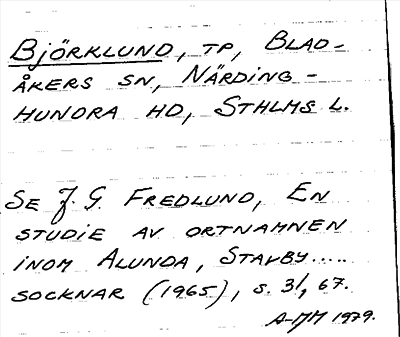 BJÖRKLUND, TP, BLAD-
ÅKERS SN, NÄRDING-
HUNDRA HD, STHLMS L.
SE J. G. FREDLUND, EN
STUDIE AV ORTNAMNEN
INOM ALUNDA, STAVBY.....
SOCKNAR (1965), S. 31, 67.
A-MM 1979.